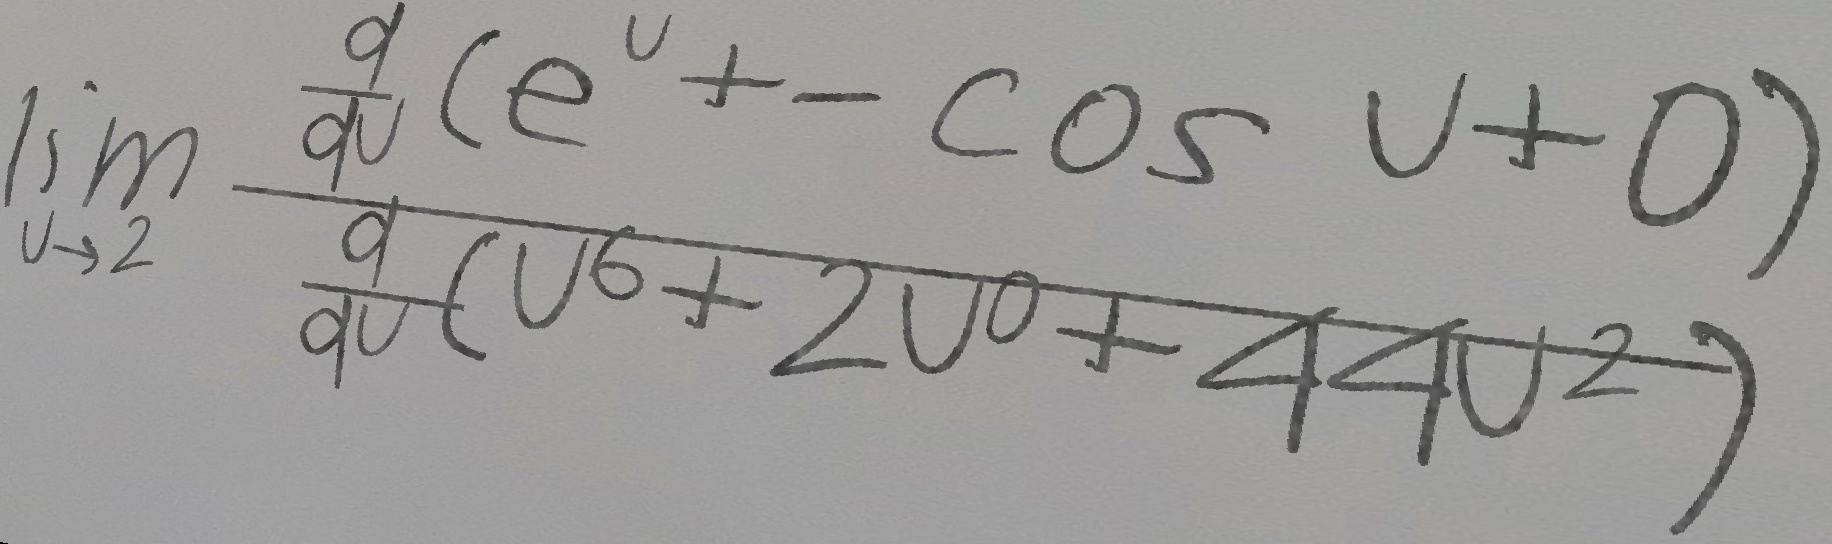 \lim_{u \to 2} \frac{\frac{d}{du}(e^{u} + -\cos u + 0)}{\frac{d}{du}(u^{6} + 2u^{0} + 44u^{2})}